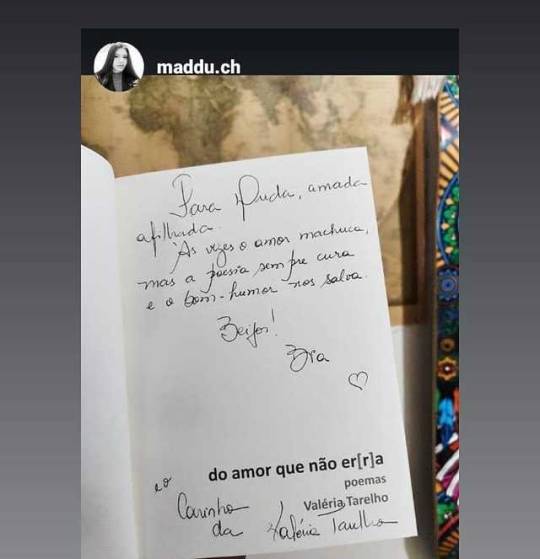 maddu.ch
Para Duda, amada
afilhada.
"Às vezes o amor machuca,
mas a poesia sempre cura
e o bom-humor nos salva.
Beijos!
Bia
do amor que não er[r]a
poemas
Valéria Tarelho
e o
Carinho
da Valéria Tarelho